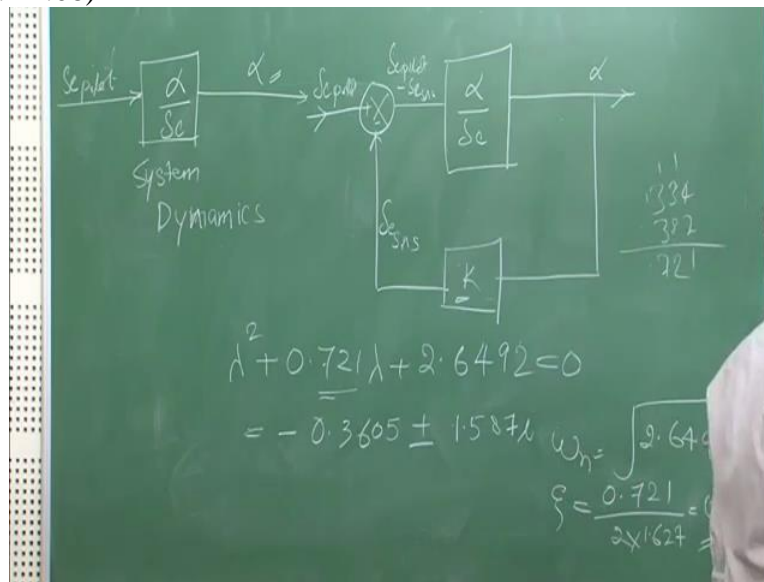 δe pilot
α
δe
α =
System
Dynamics
δe pilot
δe pilot
- δe sns
α
δe
α
K
δe sns
1 1
.334
.387
.721
λ² + 0.721λ + 2.6492 = 0
= - 0.3605 ± 1.587i
ωn = √2.64
ξ = 0.721
2×1.627
=